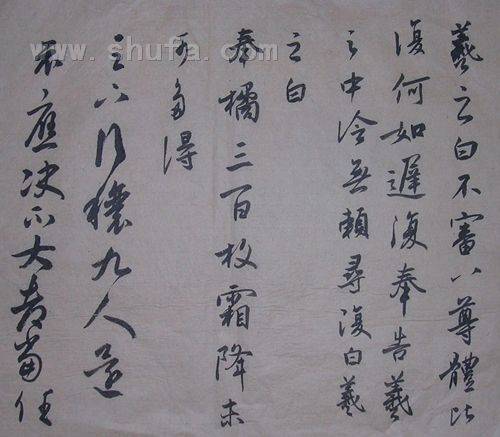 www.shufa.com
羲之白不審尊體比
復何如遲復奉告羲
之中冷無賴尋復白羲
之白
奉橘三百枚霜降未
可多得
足下行穰九人還
示應決不大都當佳